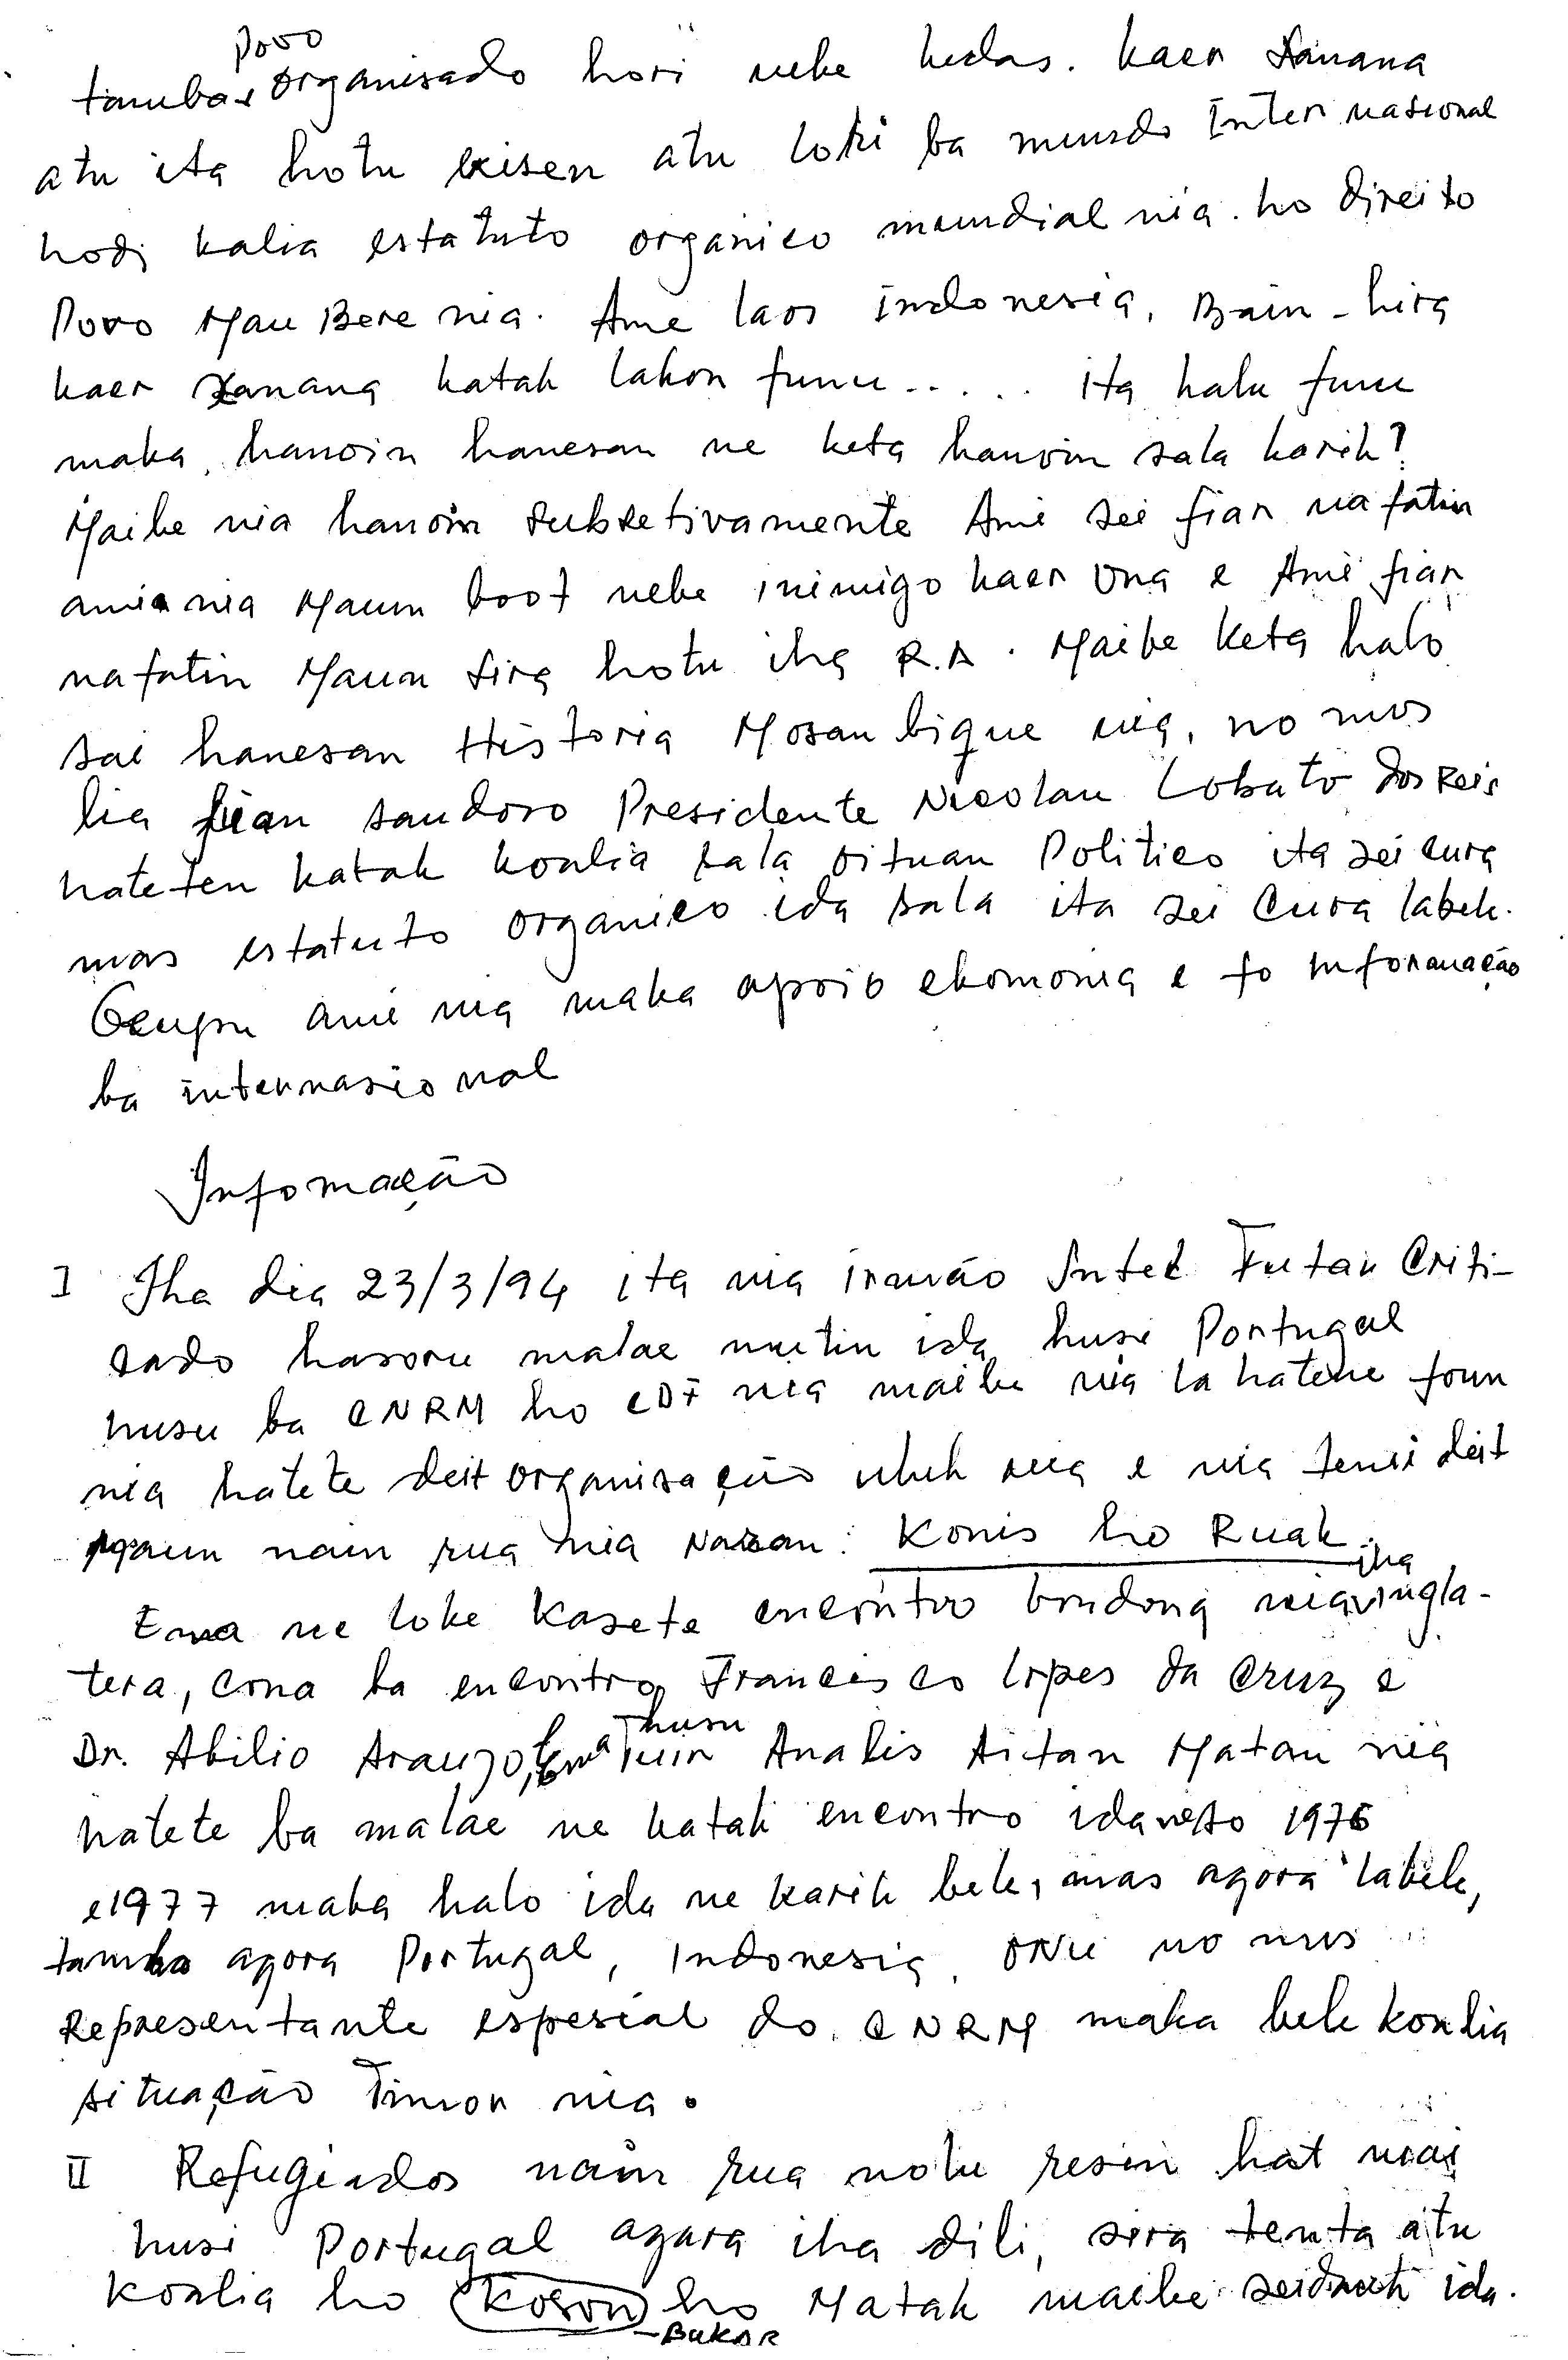 tamba povo organisado hori nebe kedas. kaer Xanana
atu ita hotu exisen atu lori ba mundo Internasional
hodi kalia estatuto organico mundial nia. ho direito
Povo Mau Bere nia. Ame laos indonesia, Bain-hira
kaer Xanana katak lakon funu ..... ita halu funu
maka hanoin hanesan ne keta hanoin sala karik?
Maibe nia hanoin subsetivamente Ami sei fiar nafatin
ami nia Maun boot nebe inimigo kaer Ona e Ami fiar
nafatin Maun sira hotu iha R.A. Maibe keta halo
sai hanesan Historia Mosanbique nia, no mos
lia fuan saudoso Presidente Nicolau Lobato dos Reis
hateten katak koalia sala oituan Politico ita sei cura
mas estatuto organico ida sala ita sei Cura labele.
Ocupu ami nia maka apoio ekomonia e fo informação
ba internasional
Infomação
I Iha dia 23/3/94 ita nia irmão Intel Futan Criti-
cado hasoru malae mutin ida husi Portugal
husu ba CNRM ho CDF nia maibe nia la hatene foun
nia hatete deit organisação uluk nia e nia temi deit
Maun nain rua nia Naran: Konis ho Ruak.
Ema ne loke Kasete encontro bondong nia iha ingla-
tera, cona ba encontro Francisco lopes da Cruz e
Dr. Abilio Araujo, husu Tuir Analis Aitan Matan nia
hatete ba malae ne katak encontro ida 1976
e 1977 maka halo ida ne karik bele, mas agora labele,
tamba agora Portugal, Indonesia, ONU no mos
Representante espesial do CNRM maka bele koalia
situação Timor nia.
II Refugiados nain rua nolu resin hat mai
husi Portugal agara iha dili, sira tenta atu
Koalia ho Koson ho Matak maibe seidauk ida.
-BUKAR